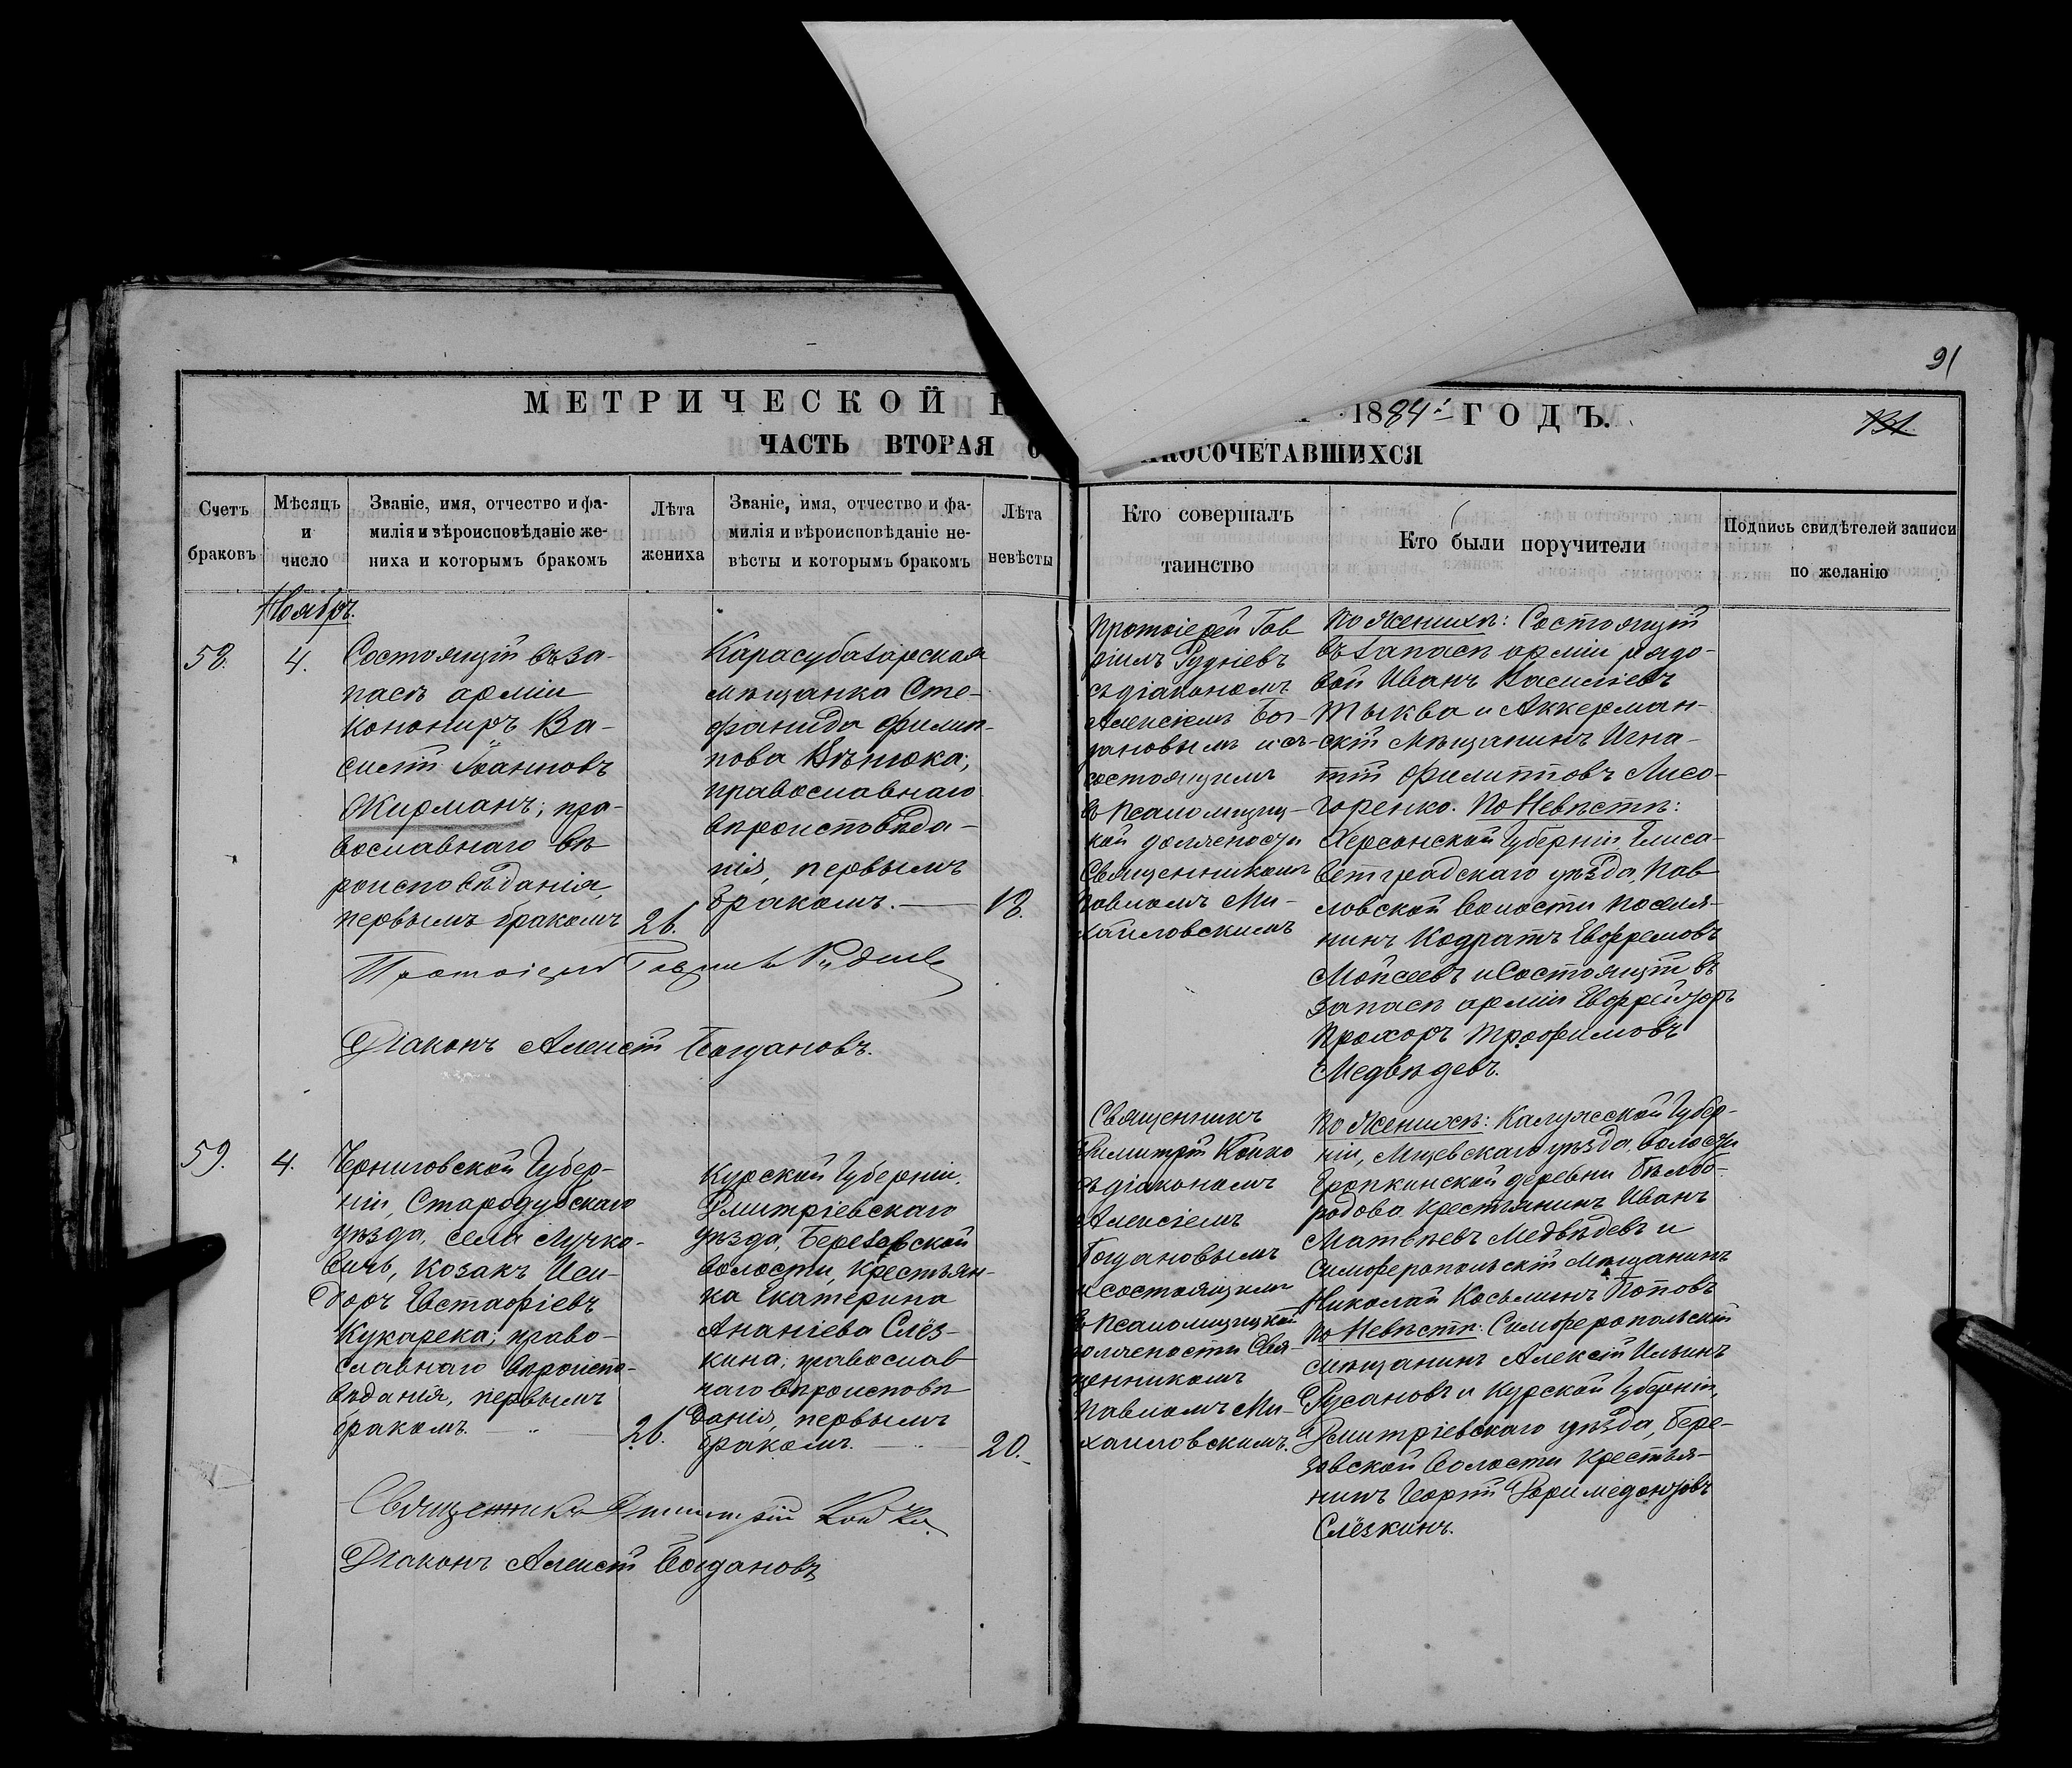 91
МЕТРИЧЕСКОЙ
1884 ГОДЪ.
131
ЧАСТЬ ВТОРАЯ
КОСОЧЕТАВШИХСЯ
Счетъ браковъ
Мѣсяцъ и число
Званіе, имя, отчество и фа-
милія и вѣроисповѣданіе же-
ниха и которымъ бракомъ
Лѣта жениха
Званіе, имя, отчество и фа-
милія и вѣроисповѣданіе не-
вѣсты и которымъ бракомъ
Лѣта невѣсты
Кто совершалъ
таинство
Кто были поручители
Подпись свидѣтелей записи
по желанію
Ноябрь.
58.
4.
Состоящій въ за-
пасѣ арміи
Конониръ Ва-
силій Іоанновъ
Жирманъ; пра-
вославнаго вѣ-
роисповѣданія,
первымъ бракомъ
26.
Карасубазарская
мѣщанка Сте-
фанида Филип-
пова
православнаго
вѣроисповѣда-
нія, первымъ
бракомъ.
18.
Протоіерей Гав
ріилъ Рудневъ
съ діакономъ
Алексіемъ Бог-
дановымъ и съ
состоящимъ
въ Псаломщиц-
кой должности
Священникомъ
Павломъ Ми-
хайловскимъ
По Женихѣ: Состоящій
въ запасѣ арміи рядо-
вой Иванъ Василіевъ
Тыква и Аккерман-
скій Мѣщанинъ Игна-
тій Филипповъ Лисо-
горенко. По Невѣстѣ:
Херсонской Губерніи, Елиса-
ветградскаго уѣзда, Пав
ловской волости поселя-
нинъ Кодратъ Евфремовъ
Мойсеевъ и Состоящій въ
запасѣ арміи Ефрейторъ
Прохоръ Трофимовъ
Медвѣдевъ.
Протоіерей Гавріилъ Рудневъ
Діаконъ Алексій Богдановъ.
59.
4.
Черниговской Губер-
ніи, Стародубскаго
уѣзда, села Лучко-
вичь, Козакъ Иси-
доръ Евстафіевъ
Кукарека; право-
славнаго вѣроиспо-
вѣданія, первымъ
бракомъ.
26.
Курской Губерніи,
Дмитріевскаго
уѣзда, Березовской
волости, Крестьян-
ка Екатерина
Ананіева Слёз-
кина; православ
наго вѣроисповѣ
данія, первымъ
бракомъ.
20.
Священникъ
Димитрій Койко
съ діакономъ
Алексіемъ
Богдановымъ
и состоящимъ
въ Псаломщицкой
должности Свя-
щенникомъ
Павломъ Ми-
хайловскимъ.
По Женихѣ: Калужской Губер-
ніи, Мщевскаго уѣзда, волости
Еропкинской деревни
родова Крестьянинъ Иванъ
Матвѣевъ Медвѣдевъ и
Симферопольскій Мѣщанинъ
Николай Косьминъ Поповъ
По Невѣстѣ: Симферопольскій
мѣщанинъ Алексій Ильинъ
Русановъ и Курской Губерніи,
Дмитріевскаго уѣзда, Бере-
зовской волости Крестья-
нинъ Георгій
Слёзкинъ.
Священникъ Димитрій Койко.
Діаконъ Алексій Богдановъ